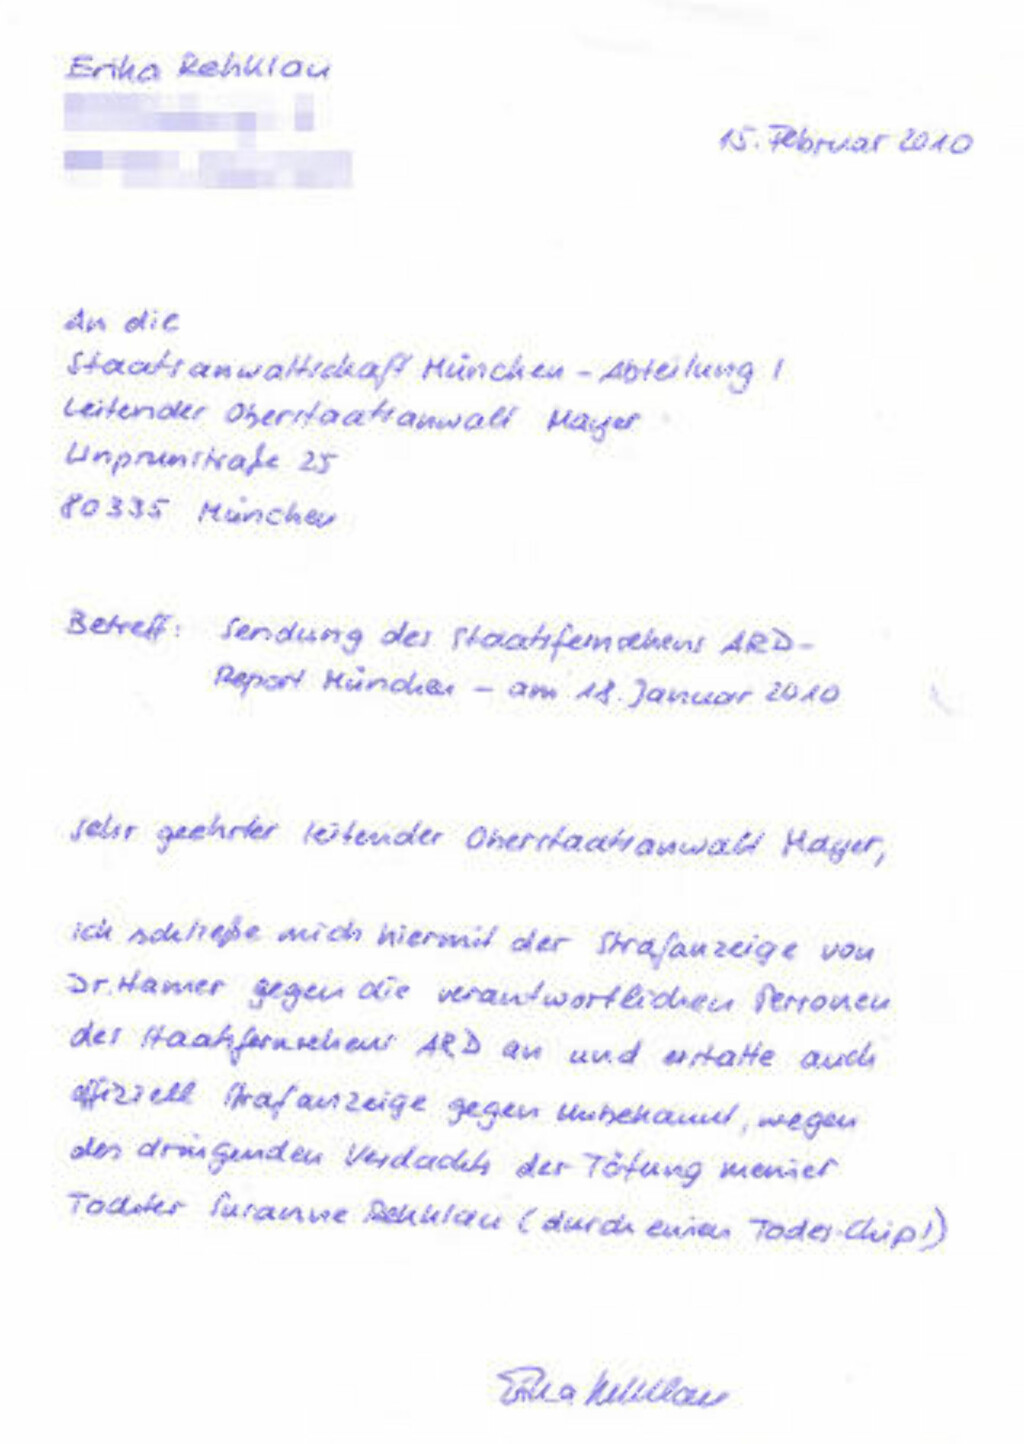 Erika Rehklau
15. Februar 2010
An die
Staatsanwaltschaft München - Abteilung I
Leitender Oberstaatsanwalt Mayer
Linprunstraße 25
80335 München
Betreff: Sendung des Staatsfernsehens ARD-
Report München - am 18. Januar 2010
Sehr geehrter leitender Oberstaatsanwalt Mayer,
ich schließe mich hiermit der Strafanzeige von
Dr. Hamer gegen die verantwortlichen Personen
des Staatsfernsehens ARD an und erstatte auch
offiziell Strafanzeige gegen Unbekannt, wegen
des dringenden Verdachts der Tötung meiner
Tochter Susanne Rehklau (durch einen Todes-Chip!)
Erika Rehklau